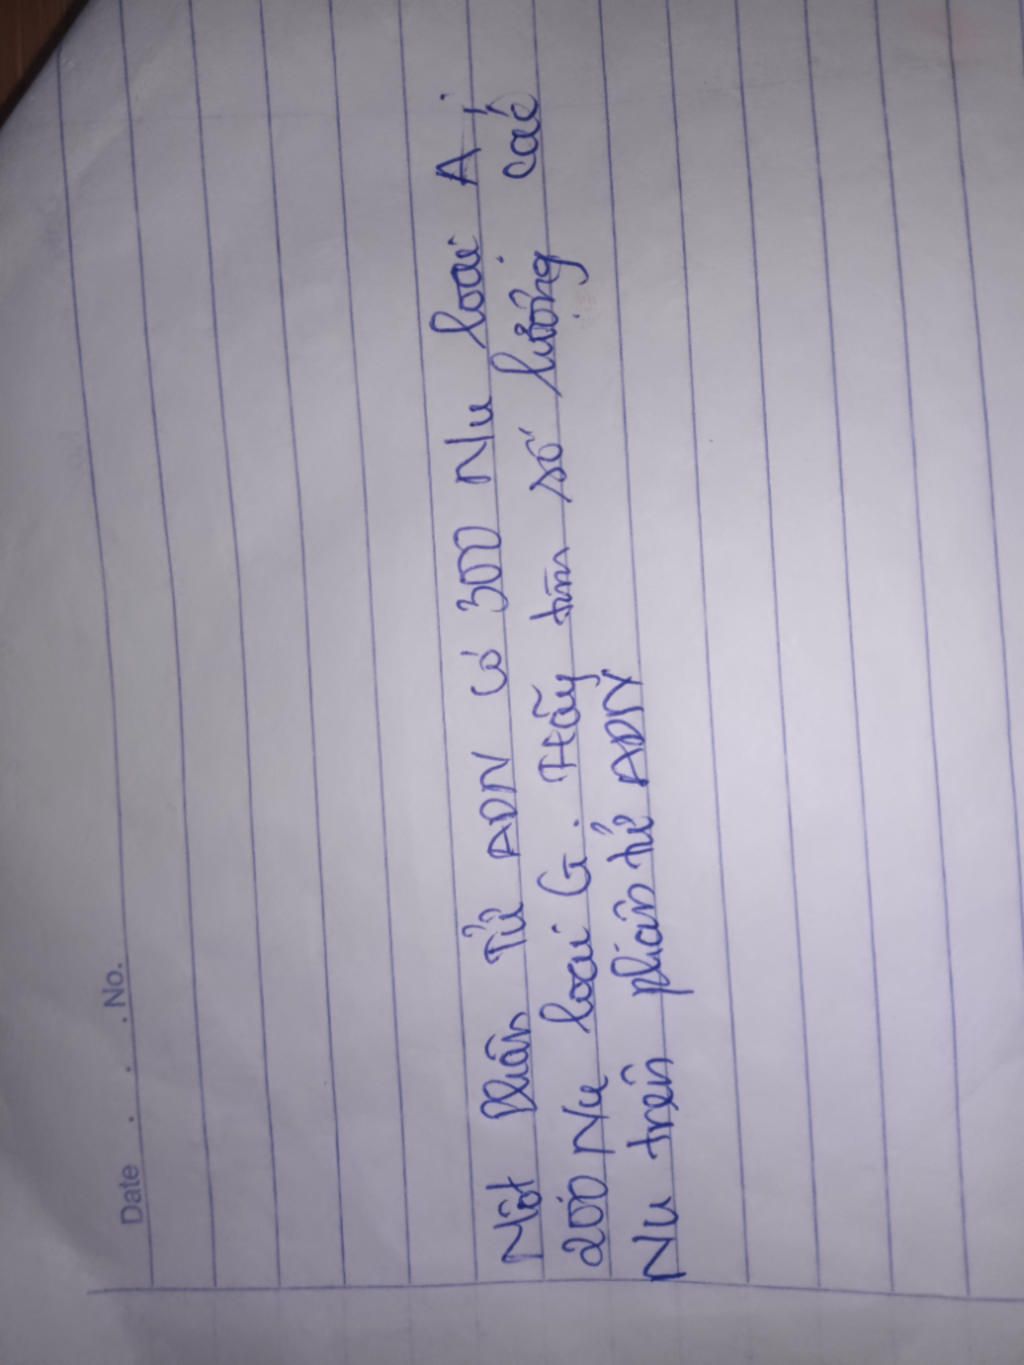 Date . . . No.
Một phân tử ADN có 300 Nu loại A;
200 Nu loại G. Hãy tìm số lượng các
Nu trên phân tử ADN